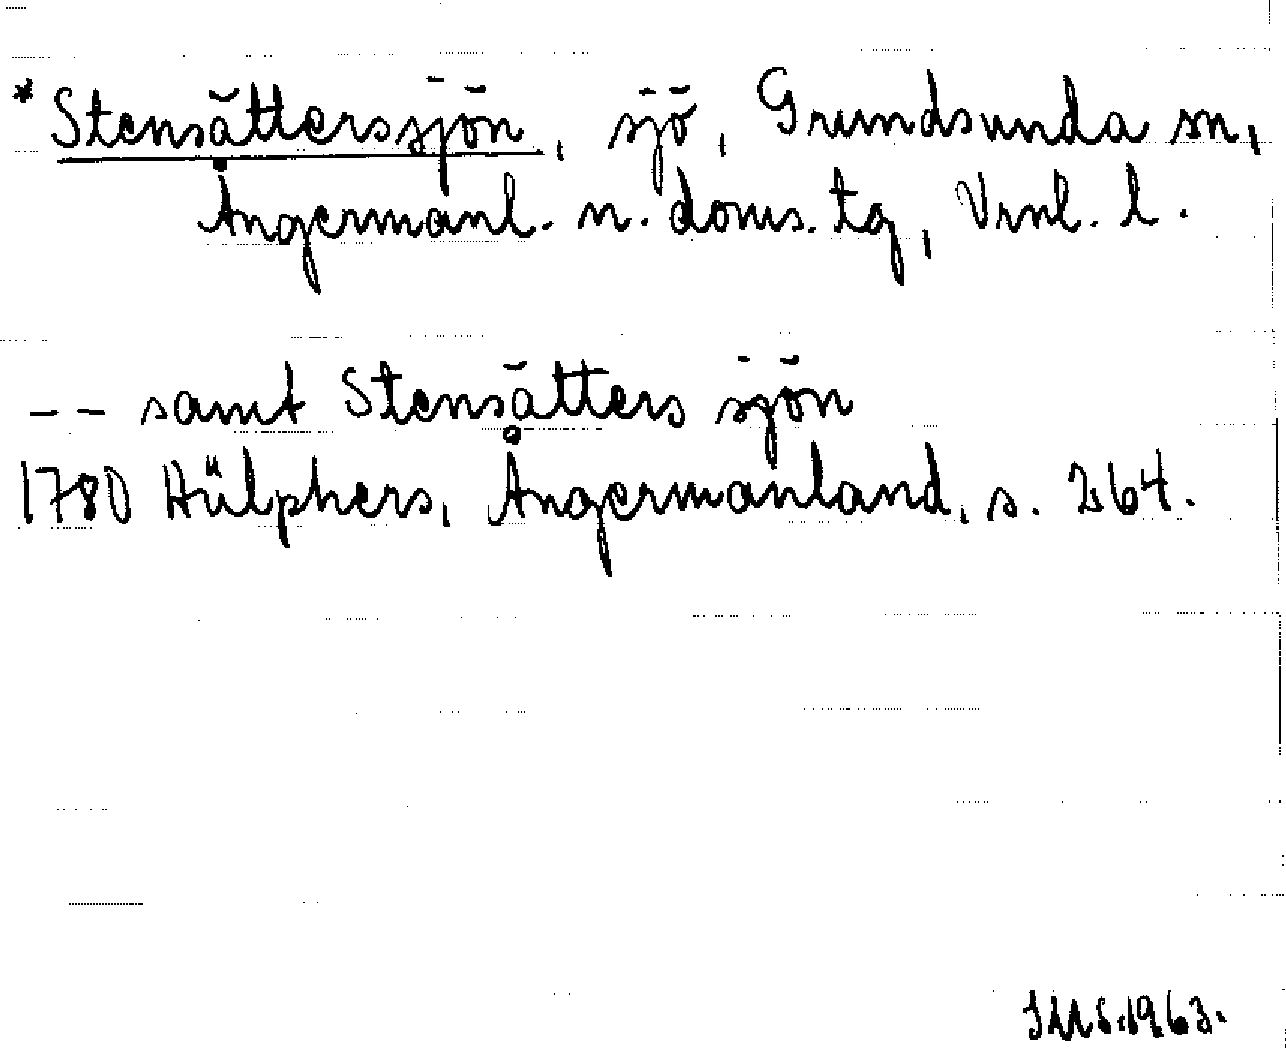 *Stensätterssjön, sjö, Grundsunda sn,
Ångermanl. n. doms. tg, Vrnl. l.
-- samt Stensätters sjön
1780 Hülphers, Ångermanland, s. 264.
1963.